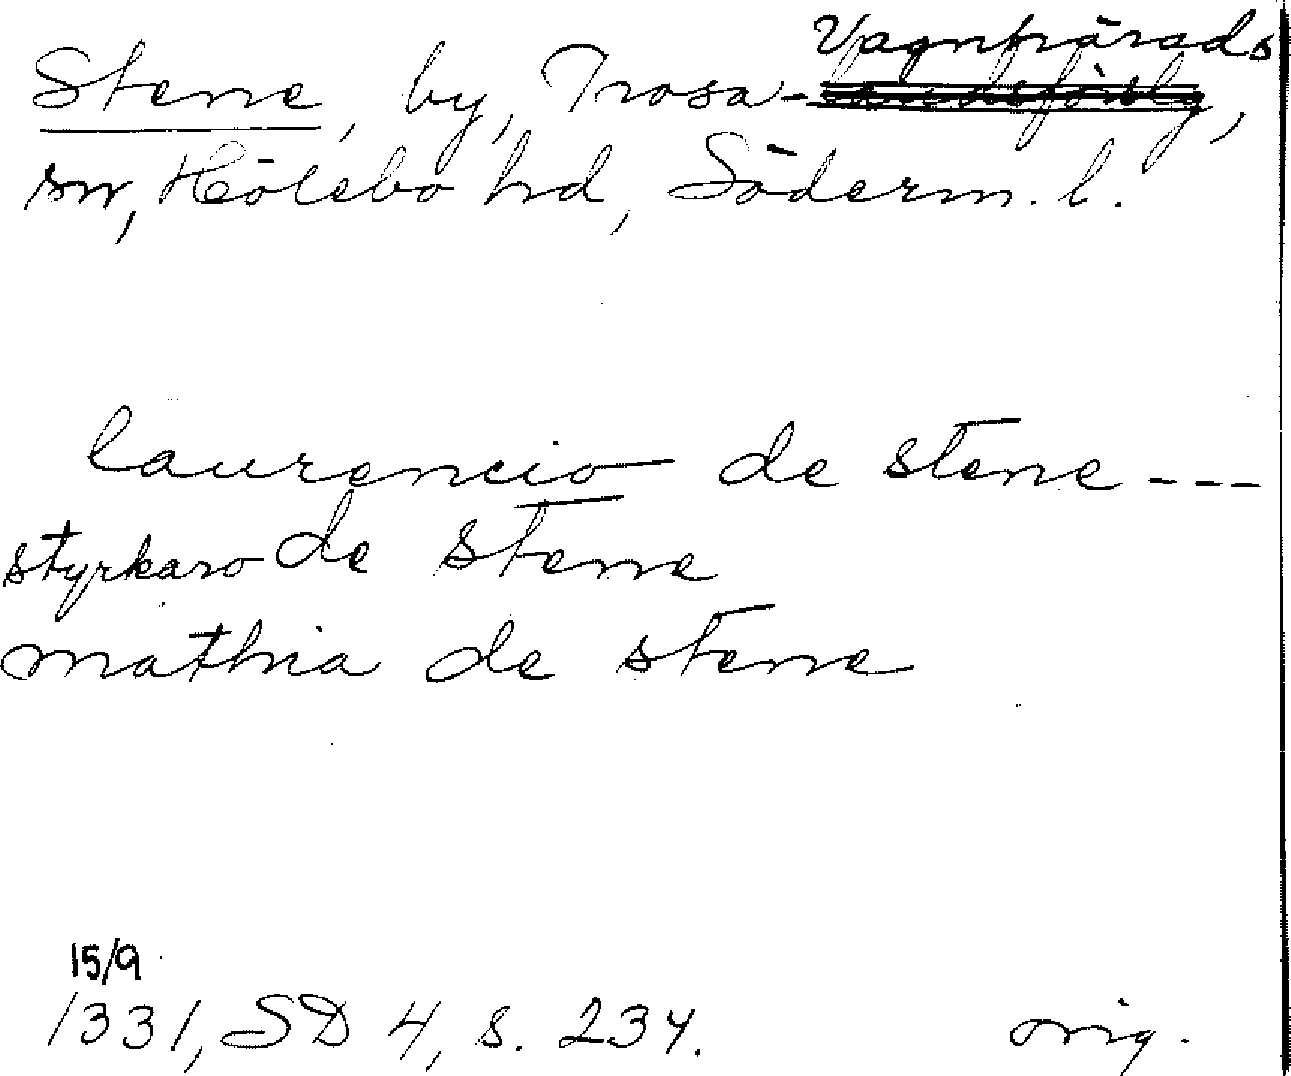 Vagnhärads
Stene, by, Trosa-,
sn, Hölebo hd, Söderm. l.
laurencio de stene ---
styrkaro de stene
mathia de stene
15/9
1331, SD 4, s. 234. orig.